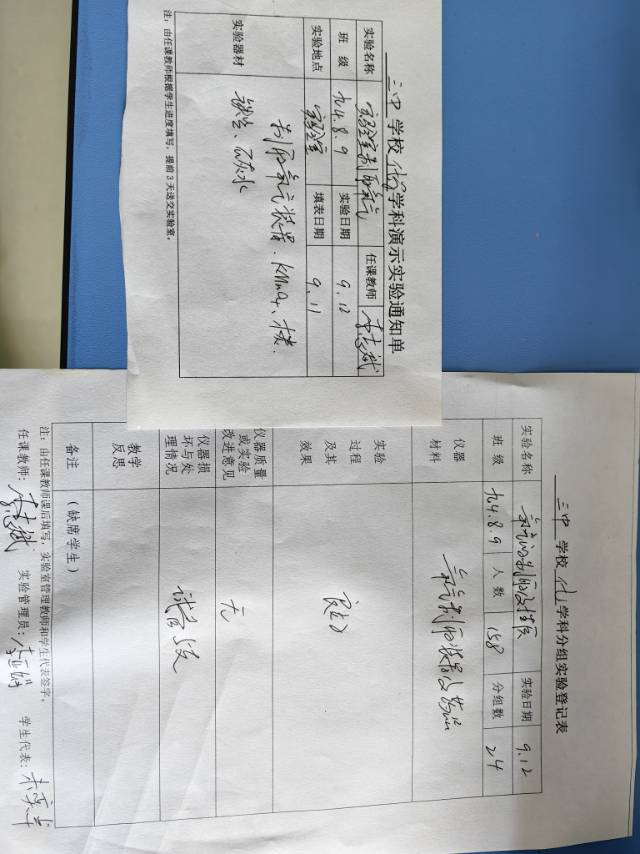 三中 学校 化学 学科演示实验通知单
实验名称 实验室制取氧气 任课教师 李志斌
班 级 九4.8.9 实验日期 9.12
实验地点 实验室 填表日期 9.11
实验器材 制取氧气装置、KMnO4、木炭、
铁丝、石灰水
注：由任课教师根据学生进度填写，提前3天送交实验室。
三中 学校 化 学科分组实验登记表
实验名称 氧气的制取及性质 实验日期 9.12
班 级 九4.8.9 人 数 158 分组数 24
仪器材料 氧气制取装置及药品
实验过程及其效果 良好
仪器质量或实验改进意见 无
仪器损坏与处理情况 试管5支
教学反思
备注 （缺席学生）
注：由任课教师课后填写，实验室管理教师和学生代表签字。
任课教师：李志斌 实验管理员：李 学生代表：